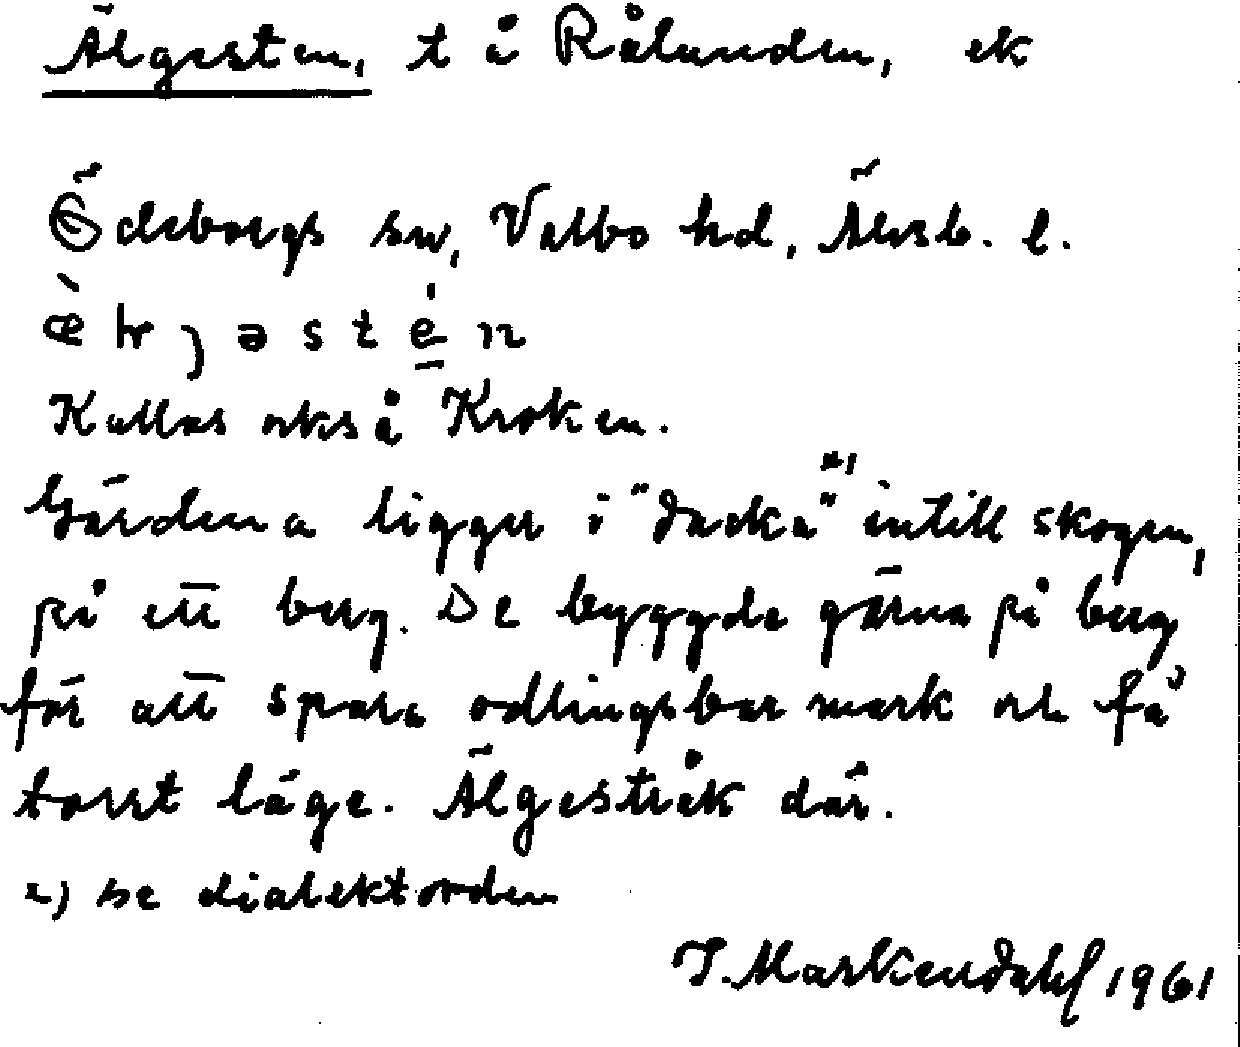 Älgesten, t å Rålunden, ek
Ödeborgs sn, Valbo hd, Älvsb. l.
Kallas också Kroken.
Gårdena ligger i "dacka" intill skogen,
på ett berg. De byggde gärna på berg
för att spara odlingsbar mark och få
torrt läge. Älgestråk där.
se dialektorden
J. Markendahl 1961